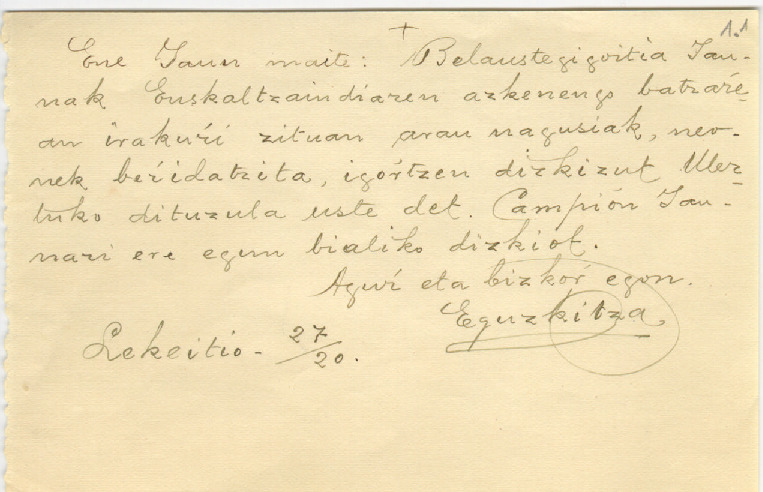 1.1
+
Ene Jaun maite: Belaustegigoitia Jau-
nak Euskaltzaindiaren azkenengo batzaŕe-
an irakuŕi zituan arau nagusiak, neo-
nek beŕidatzita, igoŕtzen dizkizut. Uler-
tuko dituzula uste det. Campión Jau-
nari ere egun bialiko dizkiot.
Aguŕ eta bizkoŕ egon.
Eguzkitza
Lekeitio - 27/20.